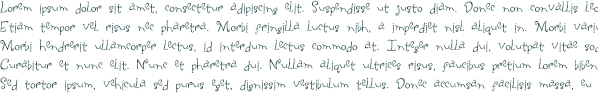 Lorem ipsum dolor sit amet, consectetur adipiscing elit. Suspendisse ut justo diam. Donec non convallis lec
Etiam tempor vel risus nec pharetra. Morbi fringilla luctus nibh, a imperdiet nisl aliquet in. Morbi variu
Morbi hendrerit ullamcorper lectus, id interdum lectus commodo at. Integer nulla dui, volutpat vitae soc
Curabitur et nunc elit. Nunc et pharetra dui. Nullam aliquet ultrices risus, faucibus pretium lorem biben
Sed tortor ipsum, vehicula sed purus eget, dignissim vestibulum tellus. Donec accumsan facilisis massa, eu